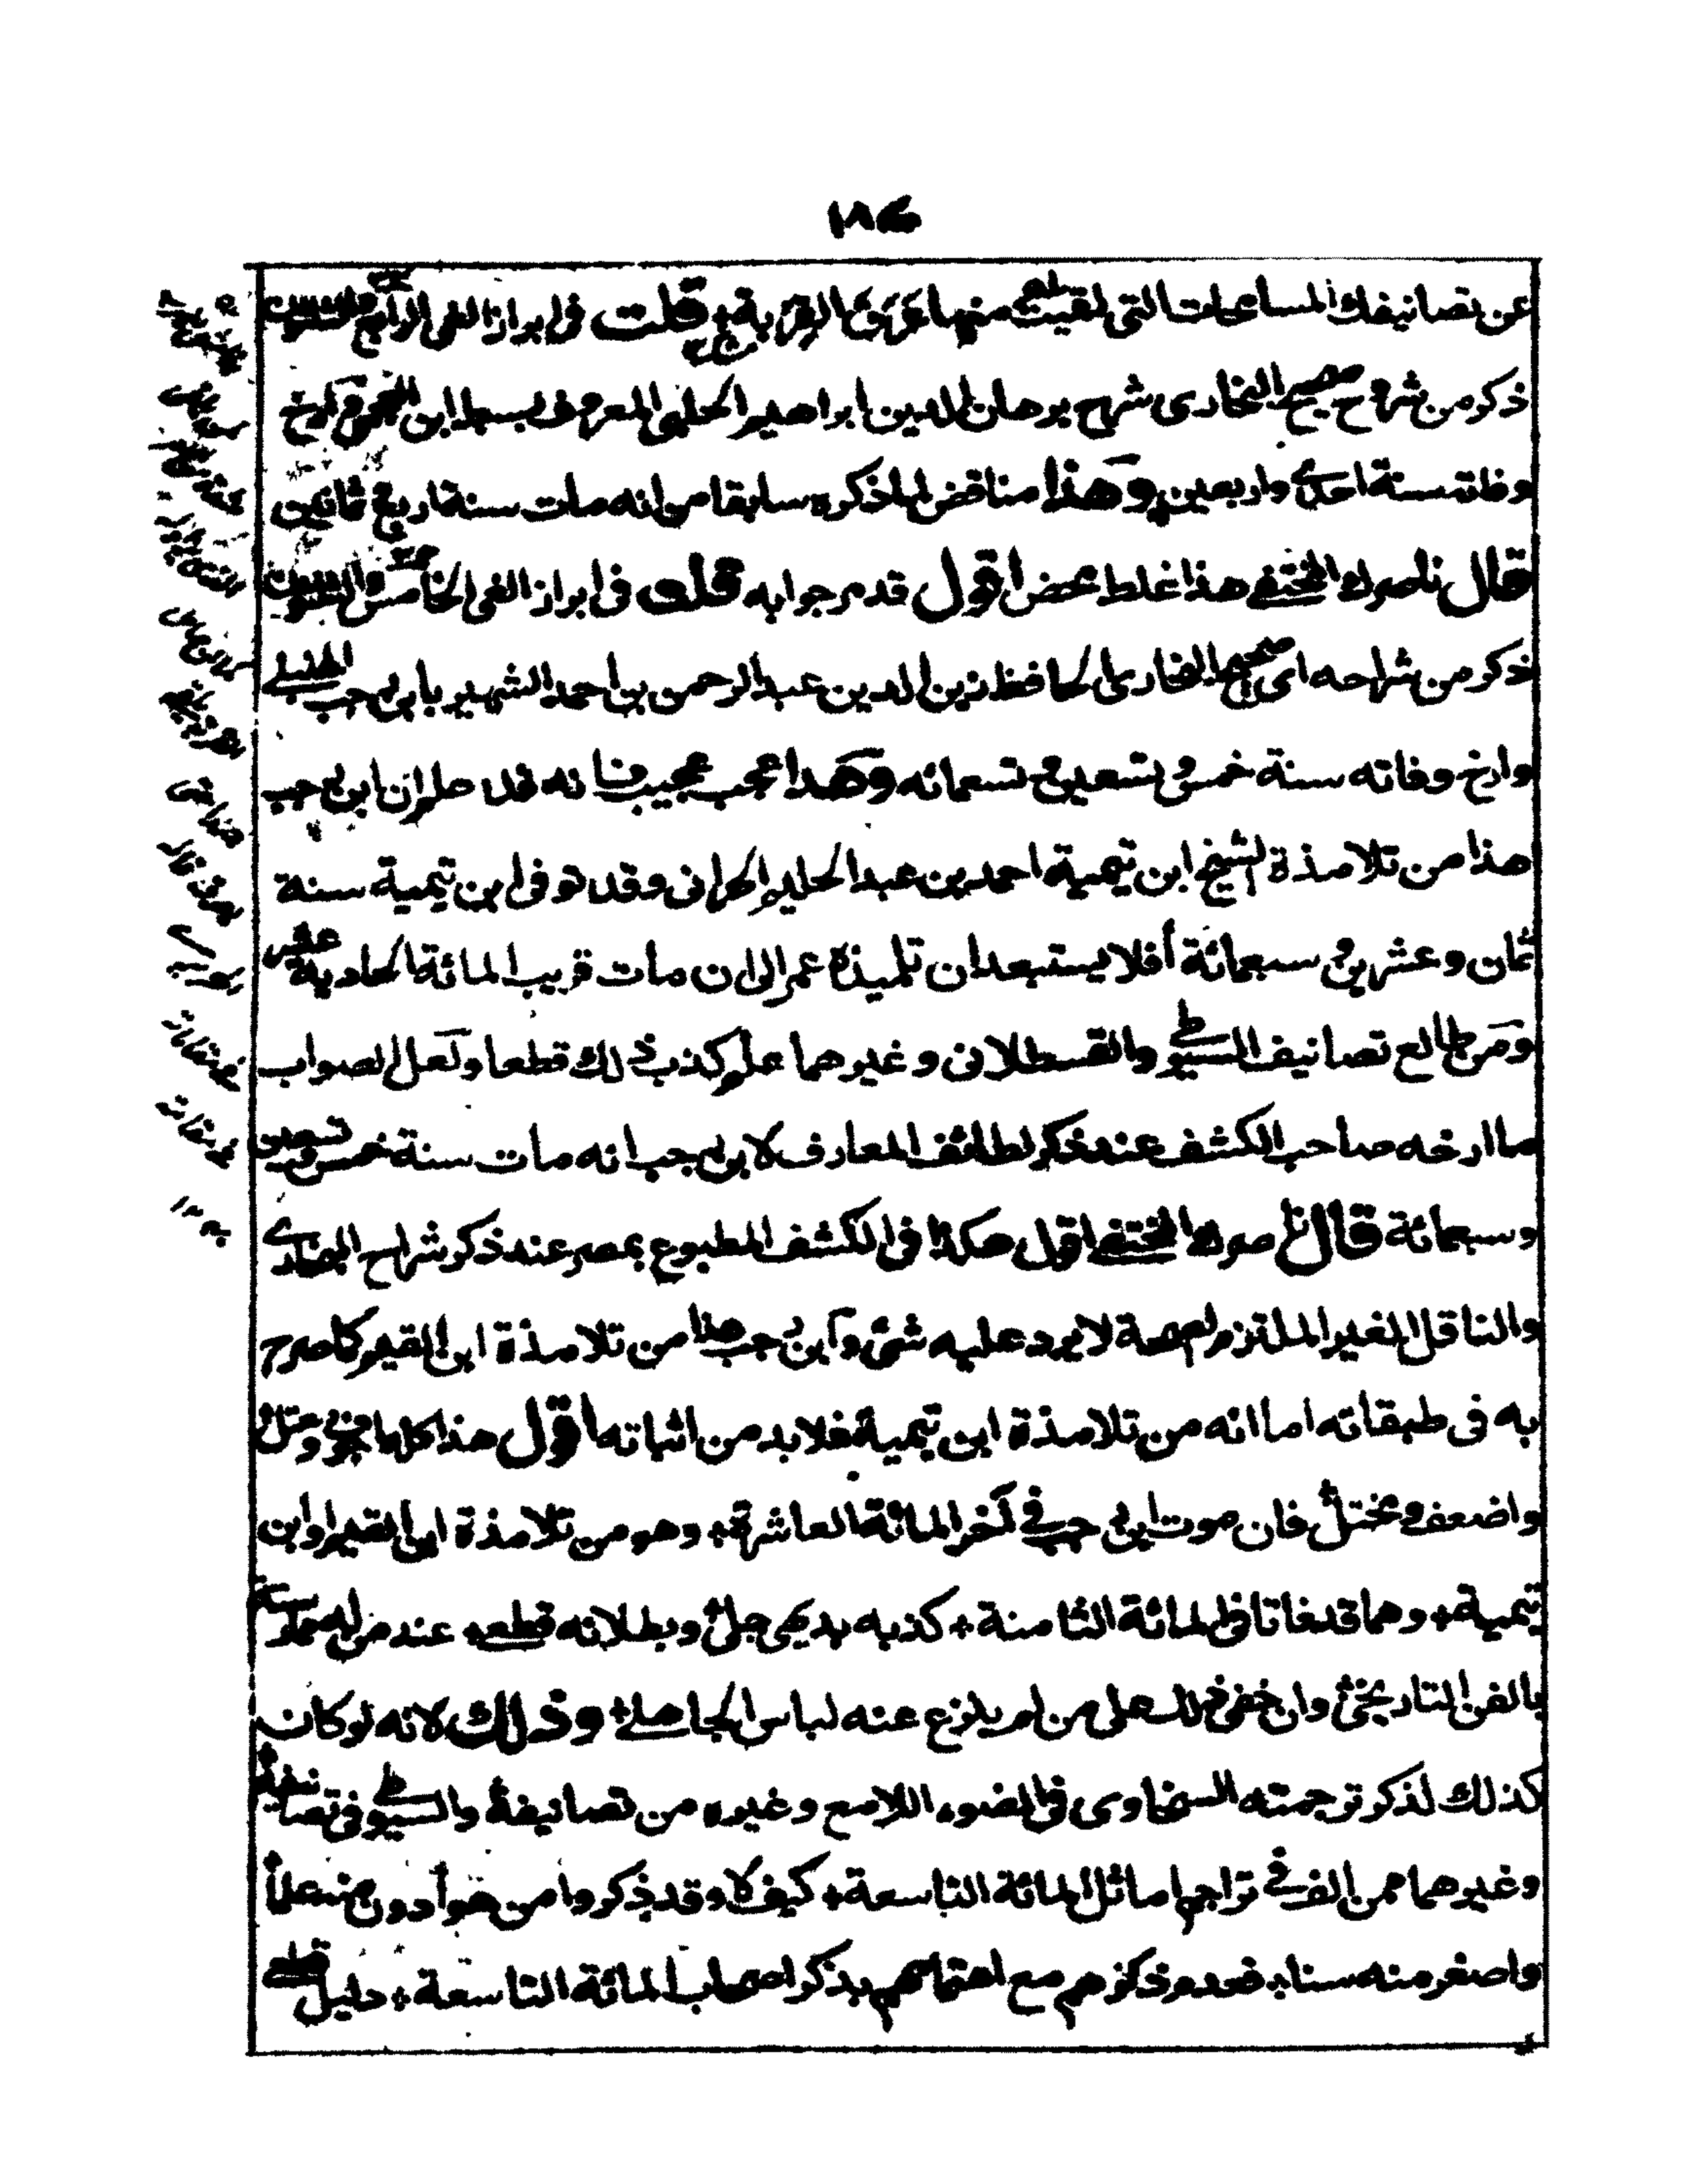 ١٨٤
عن تصانيفك المسامحات التى لقيت منها عرق القربة + قلت فى ابراز الغى الرابع والستون
ذكر من شروح صحيح البخارى شرح برهان الدين ابراهيم الحلبى المعروف بسبط ابن العجمى وارخ
وفاته سنة احدى واربعين وهذا مناقض لما ذكره سابقا من انه مات سنة اربع وثمانين
قال ناصرك المختفى هذا غلط محض اقول قد مر جوابه قلت فى ابراز الغى الخامس والستون
ذكر من شراحه اى صحيح البخارى الحافظ زين الدين عبد الرحمن بن احمد الشهير بابن رجب الحنبلى
وارخ وفاته سنة خمس وتسعين وتسعمائه وهذا عجب عجيب فانه قد علم ان ابن رجب
هذا من تلامذة الشيخ ابن تيمية احمد بن عبد الحليم الحرانى وقد توفى ابن تيمية سنة
ثمان وعشرين وسبعمائة أفلا يستبعد ان تلميذه عمر الى ان مات قريب المائة الحادية عشر
ومن طالع تصانيف السيوطى والقسطلانى وغيرهما علم كذب ذلك قطعا ولعل الصواب
ما ارخه صاحب الكشف عند ذكر لطائف المعارف لابن رجب انه مات سنة خمس وتسعين
وسبعمائة قال ناصرك المختفى اقول هكذا فى الكشف المطبوع بمصر عند ذكر شراح البخارى
والناقل الغير الملتزم لصحة لا يرد عليه شئ وابن رجب هذا من تلامذة ابن القيم كما صرح
به فى طبقاته اما انه من تلامذة ابن تيمية فلا بد من اثباته اقول هذا كله
واضعف ومختل فان موت ابن رجب فى آخر المائة العاشرة + وهو من تلامذة ابن القيم وابن
تيمية + وهما قد فاتا فى المائة الثامنة + كذبه بديهى جلى وبطلانه قطعى + عند من له
بالفن التاريخى وان خفى ذلك على من لم ينزع عنه لباس الجاهلى + وذلك لانه لو كان
كذلك لذكر ترجمته السخاوى فى الضوء اللامع وغيره من تصانيفه والسيوطى فى تصانيفه
وغيرهما ممن الف فى تراجم اماثل المائة التاسعة + كيف لا وقد ذكروا من هو أدون منه علما
واصغر منه سنا + فعدم ذكرهم مع اهتمامهم بذكر اصحاب المائة التاسعة + دليل قطعى